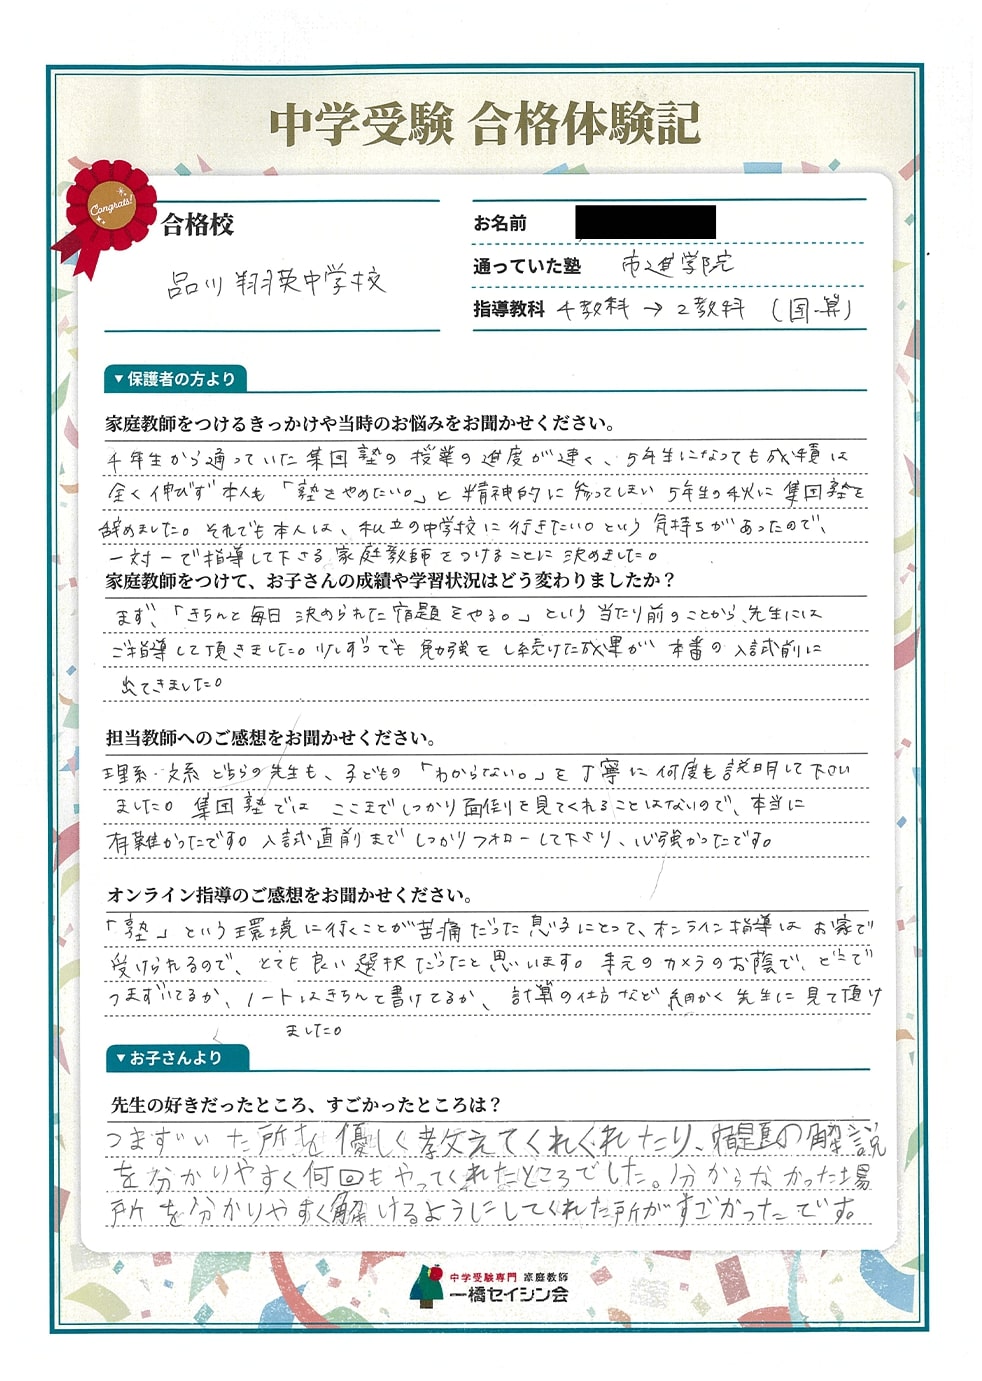 中学受験 合格体験記
Congrats!
合格校
品川翔英中学校
お名前
通っていた塾 市進学院
指導教科 4教科 → 2教科 (国・算)
▼保護者の方より
家庭教師をつけるきっかけや当時のお悩みをお聞かせください。
4年生から通っていた集団塾の授業の進度が速く、5年生になっても成績は
全く伸びず本人も「塾をやめたい。」と精神的に参ってしまい5年生の秋に集団塾を
辞めました。それでも本人は、私立の中学校に行きたい。という気持ちがあったので、
一対一で指導して下さる家庭教師をつけることに決めました。
家庭教師をつけて、お子さんの成績や学習状況はどう変わりましたか？
まず、「きちんと毎日決められた宿題をやる。」という当たり前のことから、先生には
ご指導して頂きました。少しずつでも勉強をし続けた成果が本番の入試前に
出てきました。
担当教師へのご感想をお聞かせください。
理系・文系どちらの先生も、子どもの「わからない。」を丁寧に何度も説明して下さい
ました。集団塾ではここまでしっかり面倒を見てくれることはないので、本当に
有難かったです。入試直前までしっかりフォローして下さり、心強かったです。
オンライン指導のご感想をお聞かせください。
「塾」という環境に行くことが苦痛だった息子にとって、オンライン指導はお家で
受けられるので、とても良い選択だったと思います。手元のカメラのお陰で、どこで
つまずいてるか、ノートはきちんと書けてるか、計算の仕方など細かく先生に見て頂け
ました。
▼お子さんより
先生の好きだったところ、すごかったところは？
つまずいた所を優しく教えてくれたり、宿題の解説
を分かりやすく何回もやってくれたところでした。分からなかった場
所を分かりやすく解けるようにしてくれた所がすごかったです。
中学受験専門 家庭教師
一橋セイシン会